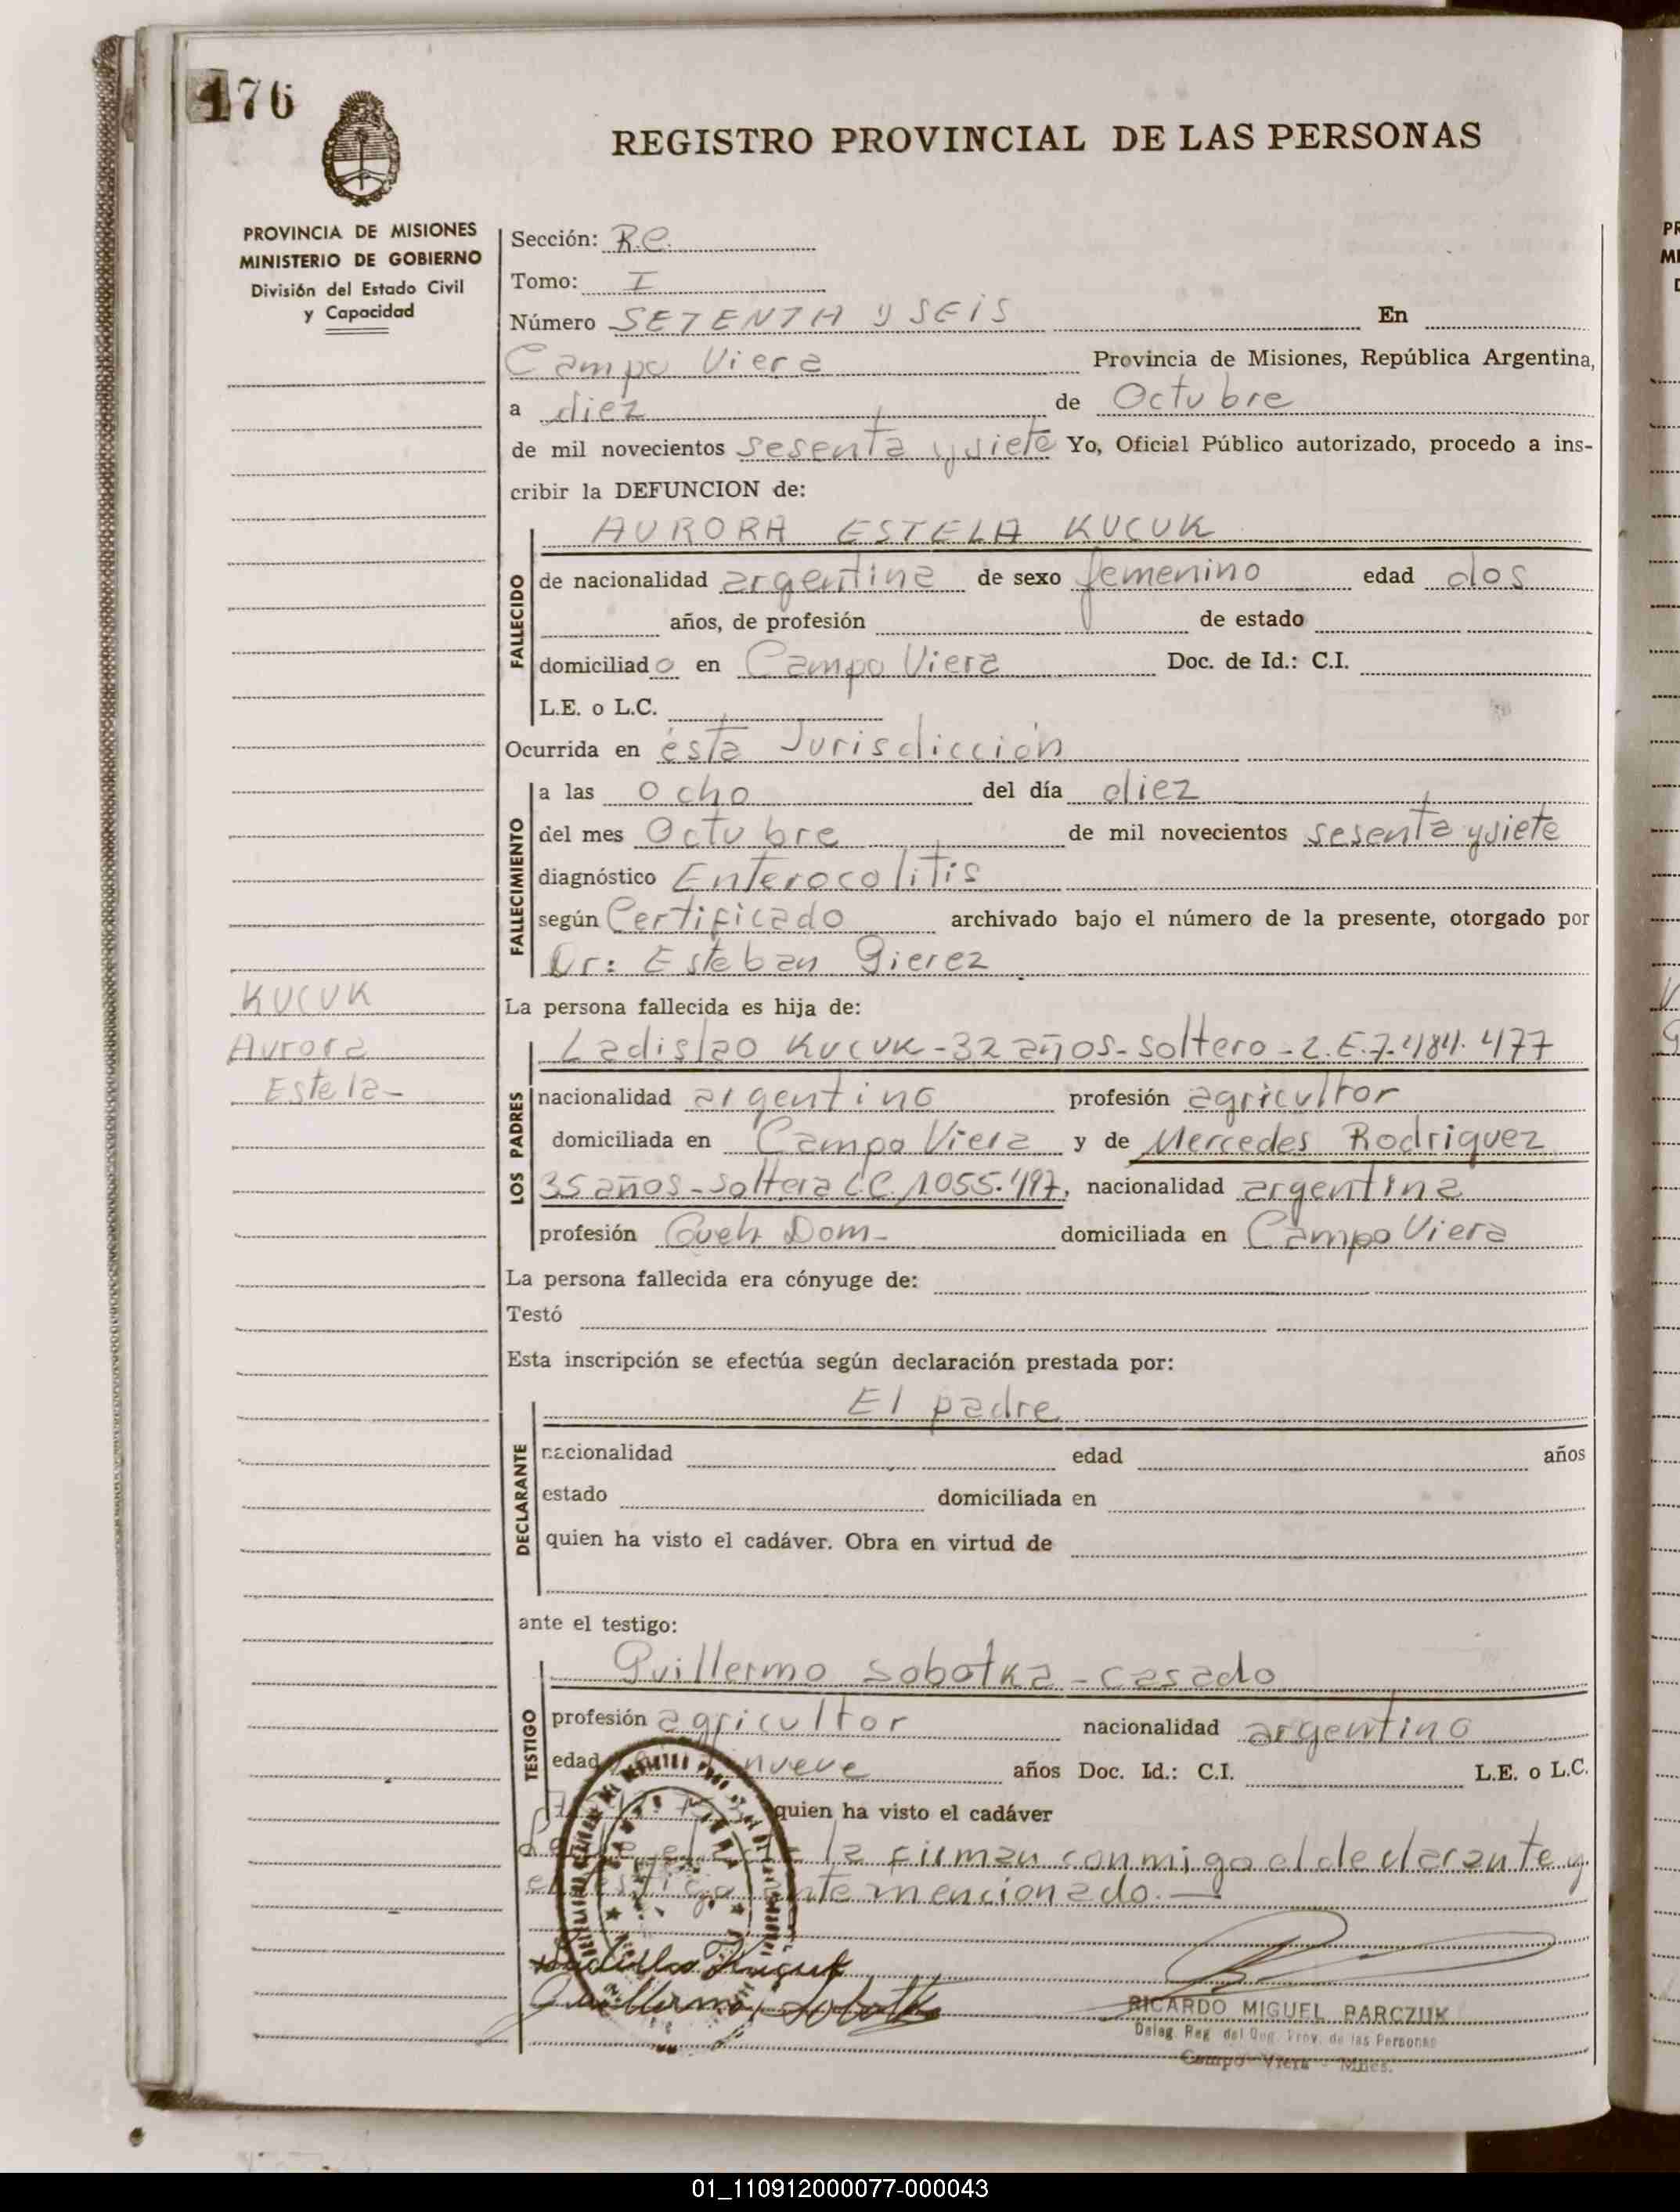 176
REGISTRO PROVINCIAL DE LAS PERSONAS
PROVINCIA DE MISIONES
MINISTERIO DE GOBIERNO
División del Estado Civil
y Capacidad
Sección: R.C.
Tomo: I
Número SETENTA y SEIS En
Campo Viera Provincia de Misiones, República Argentina,
a diez de Octubre
de mil novecientos sesenta y siete Yo, Oficial Público autorizado, procedo a ins-
cribir la DEFUNCION de:
FALLECIDO
AURORA ESTELA KUCUK
de nacionalidad argentina de sexo femenino edad dos
años, de profesión de estado
domiciliado en Campo Viera Doc. de Id.: C.I.
L.E. o L.C.
Ocurrida en ésta Jurisdicción
FALLECIMIENTO
a las ocho del día diez
del mes Octubre de mil novecientos sesenta y siete
diagnóstico Enterocolitis
según Certificado archivado bajo el número de la presente, otorgado por
Dr: Esteban Gierez
KUCUK
Aurora
Estela-
La persona fallecida es hija de:
LOS PADRES
Ladislao Kucuk-32 años-soltero-L.E.7.484.477
nacionalidad argentino profesión agricultor
domiciliada en Campo Viera y de Mercedes Rodriguez
35 años-soltera L.C. 1055.497, nacionalidad argentina
profesión Dom- domiciliada en Campo Viera
La persona fallecida era cónyuge de:
Testó
Esta inscripción se efectúa según declaración prestada por:
DECLARANTE
El padre
nacionalidad edad años
estado domiciliada en
quien ha visto el cadáver. Obra en virtud de
ante el testigo:
TESTIGO
Guillermo Sobotka-casado
profesión agricultor nacionalidad argentino
edad nueve años Doc. Id.: C.I. L.E. o L.C.
quien ha visto el cadáver
la firman conmigo el declarante y
el testigo antemencionado.—
Ladislao Kucuk
Guillermo Sobotka
RICARDO MIGUEL PARCZUK
Deleg. Reg. del Reg. Prov. de las Personas
Campo Viera - Mnes.
01_110912000077-000043